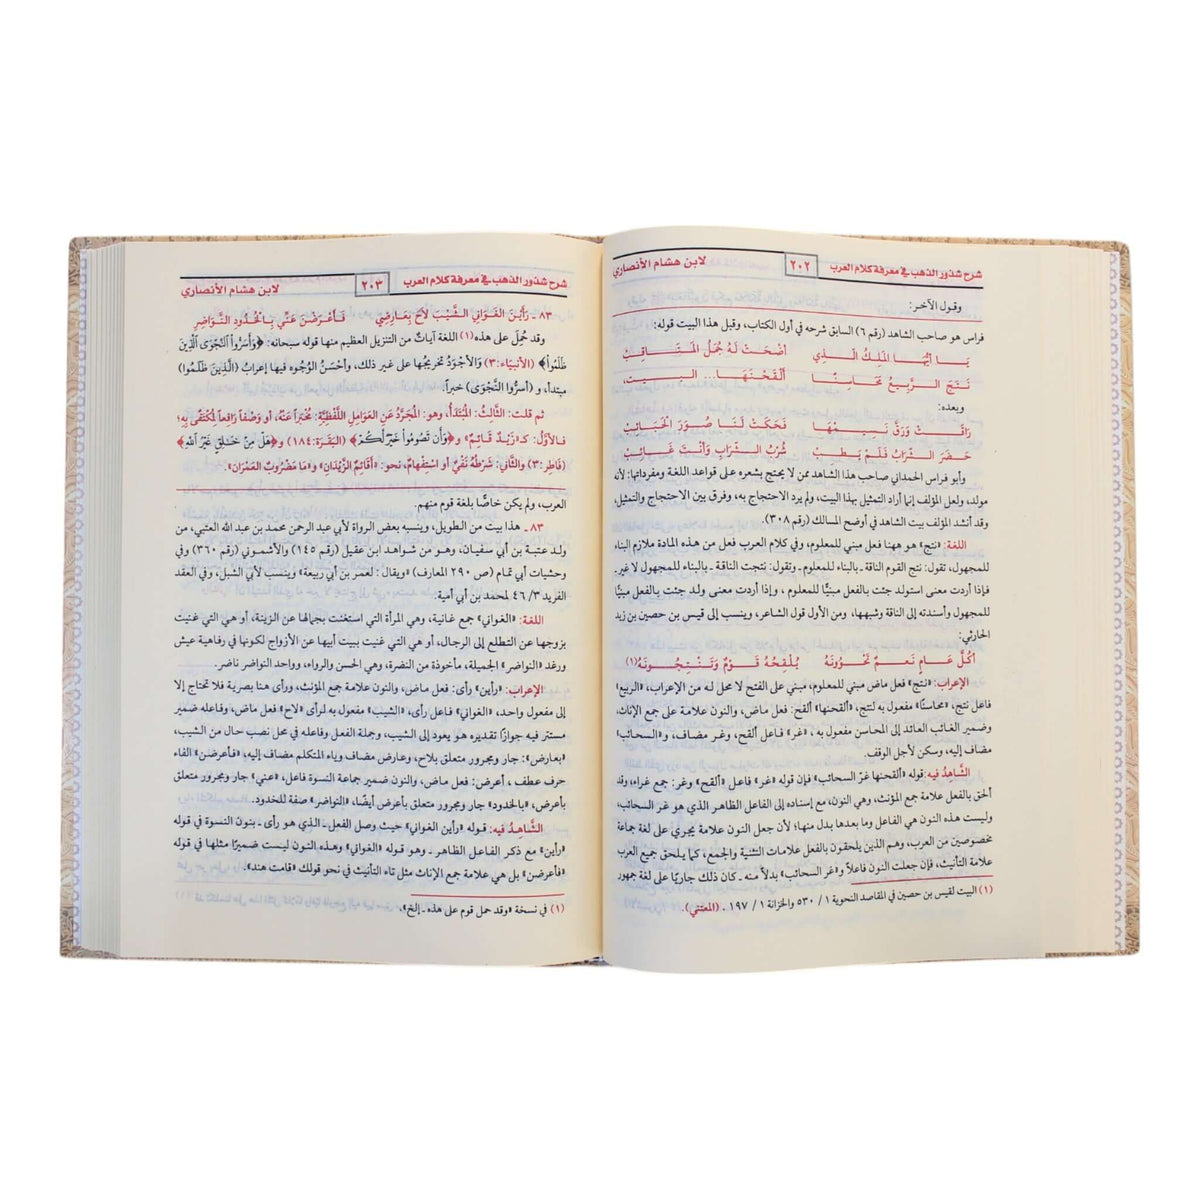 شرح شذور الذهب في معرفة كلام العرب ٢٠٢ لابن هشام الأنصاري
وقول الآخر:
فراس هو صاحب الشاهد (رقم ٦) السابق شرحه في أول الكتاب، وقبل هذا البيت قوله:
يَا أَيُّهَا المَلِكُ الَّذِي أَضْحَتْ لَهُ جُمَلُ المَنَاقِبْ
نَتَجَ الرَّبِيعُ مَحَاسِنًا أَلْقَحْنَهَا... البيت،
وبعده:
رَاقَتْ وَرَقَّ نَسِيمُهَا فَحَكَتْ لَنَا صُوَرَ الحَبَائِبْ
حَضَرَ الشَّرَابُ فَلَمْ يَطِبْ شُرْبُ الشَّرَابِ وَأَنْتَ غَائِبْ
وأبو فراس الحمداني صاحب هذا الشاهد ممن لا يحتج بشعره على قواعد اللغة ومفرداتها؛ لأنه
مولد، ولعل المؤلف إنما أراد التمثيل بهذا البيت، ولم يرد الاحتجاج به، وفرق بين الاحتجاج والتمثيل،
وقد أنشد المؤلف بيت الشاهد في أوضح المسالك (رقم ٣٠٨).
اللغة: «نتج» هو ههنا فعل مبني للمعلوم، وفي كلام العرب فعل من هذه المادة ملازم البناء
للمجهول، تقول: نتج القوم الناقة ـ بالبناء للمعلوم ـ وتقول: نتجت الناقة ـ بالبناء للمجهول لا غير ـ
فإذا أردت معنى استولد جئت بالفعل مبنيًّا للمعلوم، وإذا أردت معنى ولد جئت بالفعل مبنيًّا
للمجهول وأسندته إلى الناقة وشبهها، ومن الأول قول الشاعر، وينسب إلى قيس بن حصين بن زيد
الحارثي:
أكُلَّ عَامٍ نَعَمٌ تَحْوُونَهُ يُلْقِحُهُ قَوْمٌ وَتَنْتِجُونَهُ(١)
الإعراب: «نتج» فعل ماض مبني للمعلوم، مبني على الفتح لا محل له من الإعراب، «الربيع»
فاعل نتج، «محاسنًا» مفعول به لنتج، «ألقحنها» ألقح: فعل ماض، والنون علامة على جمع الإناث،
وضمير الغائب العائد إلى المحاسن مفعول به، «غر» فاعل ألقح، وغر مضاف، و«السحائب»
مضاف إليه، وسكن لأجل الوقف.
الشَّاهِدُ فيه: قوله «ألقحنها غرّ السحائب» فإن قوله «غر» فاعل «ألقح» وغر: جمع غراء، وقد
ألحق بالفعل علامة جمع المؤنث، وهي النون، مع إسناده إلى الفاعل الظاهر الذي هو غر السحائب،
وليست هذه النون هي الفاعل وما بعدها بدل منها؛ لأن جعل النون علامة يجري على لغة جماعة
مخصوصين من العرب، وهم الذين يلحقون بالفعل علامات التثنية والجمع، كما يلحق جميع العرب
علامة التأنيث، فإن جعلت النون فاعلاً و«غر السحائب» بدلاً منه ـ كان ذلك جاريًا على لغة جمهور
(١) البيت لقيس بن حصين في المقاصد النحوية ١ / ٥٣٠ والخزانة ١ / ١٩٧ . (المعتني).
شرح شذور الذهب في معرفة كلام العرب ٢٠٣ لابن هشام الأنصاري
٨٣ ـ رَأَيْنَ الغَوَانِي الشَّيْبَ لَاحَ بِعَارِضِي فَأَعْرَضْنَ عَنِّي بِالخُدُودِ النَّوَاضِرِ
وقد حُمِلَ على هذه(١) اللغة آياتٌ من التنزيل العظيم منها قوله سبحانه: ﴿وَأَسَرُّوا النَّجْوَى الَّذِينَ
ظَلَمُوا﴾ (الأنبياء:٣) وَالأَجْوَدُ تخريجُها على غير ذلك، وأحْسَنُ الوُجُوهِ فيها إعرابُ (الَّذِينَ ظَلَمُوا)
مبتدأ، و (أسرُّوا النَّجْوَى) خبراً.
ثم قلت: الثَّالِثُ: المُبْتَدَأُ، وهو: المُجَرَّدُ عَنِ العَوَامِلِ اللَّفْظِيَّةِ: مُخْبَراً عَنْهُ، أو وَصْفاً رَافِعاً لِمُكْتَفًى بِهِ؛
فالأوَّلُ: كـ«زَيْدٌ قَائِمٌ» و﴿وَأَن تَصُومُوا خَيْرٌ لَّكُمْ﴾ (البَقَرَة:١٨٤) و﴿هَلْ مِنْ خَالِقٍ غَيْرُ اللهِ﴾
(فَاطِر:٣) والثَّانِي: شَرْطُهُ نَفْيٌ أو اسْتِفْهَامٌ، نحو: «أَقَائِمٌ الزَّيْدَانِ» و«مَا مَضْرُوبٌ العَمْرَانِ».
العرب، ولم يكن خاصًّا بلغة قوم منهم.
٨٣ ـ هذا بيت من الطويل، وينسبه بعض الرواة لأبي عبد الرحمن محمد بن عبد الله العتبي، من
ولد عتبة بن أبي سفيان، وهو من شواهد ابن عقيل (رقم ١٤٥) والأشموني (رقم ٣٦٠) وفي
وحشيات أبي تمام (ص ٢٩٠ المعارف) «ويقال: لعمر بن أبي ربيعة» وينسب لأبي الشبل، وفي العقد
الفريد ٣/ ٤٦ لمحمد بن أبي أمية.
اللغة: «الغواني» جمع غانية، وهي المرأة التي استغنت بجمالها عن الزينة، أو هي التي غنيت
بزوجها عن التطلع إلى الرجال، أو هي التي غنيت ببيت أبيها عن الأزواج لكونها في رفاهية عيش
ورغد «النواضر» الجميلة، مأخوذة من النضرة، وهي الحسن والرواء، وواحد النواضر ناضر.
الإعراب: «رأين» رأى: فعل ماض، والنون علامة جمع المؤنث، ورأى هنا بصرية فلا تحتاج إلا
إلى مفعول واحد، «الغواني» فاعل رأى، «الشيب» مفعول به لرأى «لاح» فعل ماض، وفاعله ضمير
مستتر فيه جوازًا تقديره هو يعود إلى الشيب، وجملة الفعل وفاعله في محل نصب حال من الشيب،
«بعارضي»: جار ومجرور متعلق بلاح، وعارض مضاف وياء المتكلم مضاف إليه، «فأعرضن» الفاء
حرف عطف، أعرضن: فعل ماض، والنون ضمير جماعة النسوة فاعل، «عني» جار ومجرور متعلق
بأعرض، «بالخدود» جار ومجرور متعلق بأعرض أيضًا، «النواضر» صفة للخدود.
الشَّاهِدُ فيه: قوله «رأين الغواني» حيث وصل الفعل ـ الذي هو رأى ـ بنون النسوة في قوله
«رأين» مع ذكر الفاعل الظاهر ـ وهو قوله «الغواني» وهذه النون ليست ضميرًا مثلها في قوله
«فأعرضن» بل هي علامة جمع الإناث مثل تاء التأنيث في نحو قولك «قامت هند».
(١) في نسخة «وقد حمل قوم على هذه ـ إلخ».